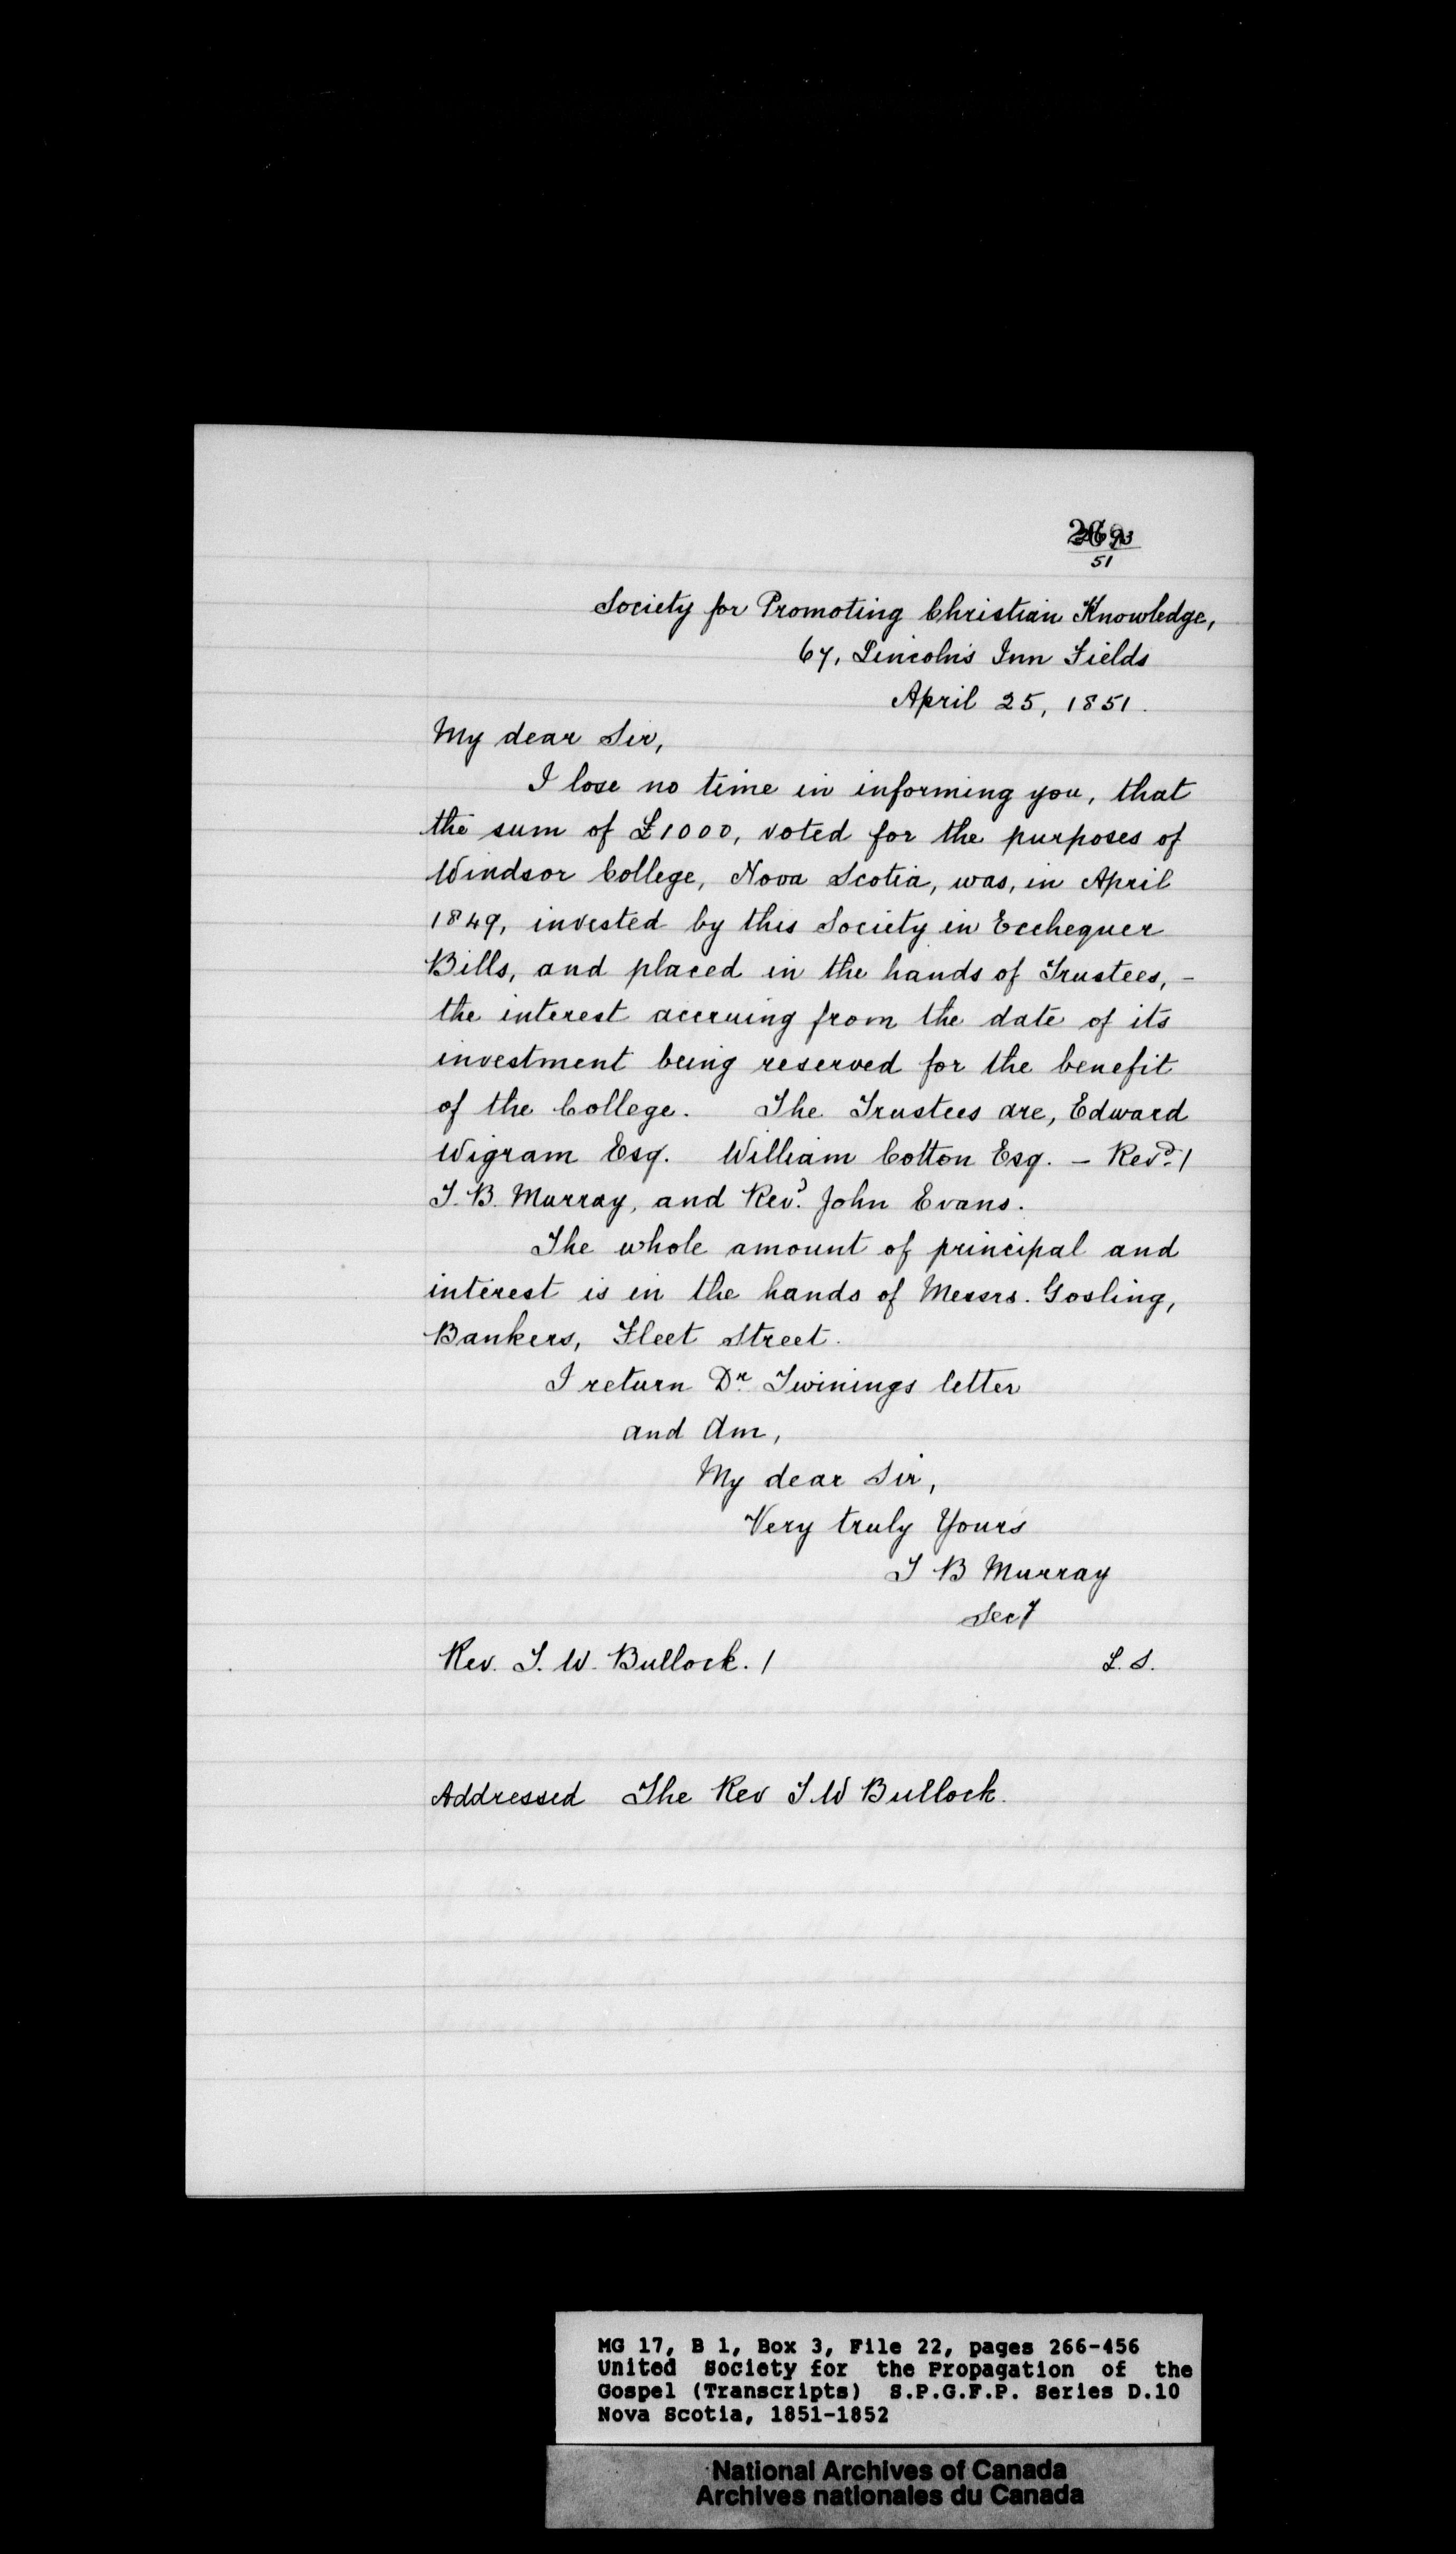 51
Society for Promoting Christian Knowledge,
67, Lincoln's Inn Fields
April 25, 1851.
My dear Sir,
I lose no time in informing you, that
the sum of £1000, voted for the purposes of
Windsor College, Nova Scotia, was, in April
1849, invested by this Society in Ecchequer
Bills, and placed in the hands of Trustees, -
the interest accruing from the date of its
investment being reserved for the benefit
of the College. The Trustees are, Edward
Wigram Esq. William Cotton Esq. - Revd. /
T. B. Murray, and Revd. John Evans.
The whole amount of principal and
interest is in the hands of Messrs. Gosling,
Bankers, Fleet Street.
I return Dr. Twinings letter
and Am,
My dear Sir,
Very truly Yours
T B Murray
Secy
Rev. T. W. Bullock. /
L. S.
Addressed The Rev T. W Bullock.
MG 17, B 1, Box 3, File 22, pages 266-456
United Society for the Propagation of the
Gospel (Transcripts) S.P.G.F.P. Series D.10
Nova Scotia, 1851-1852
National Archives of Canada
Archives nationales du Canada